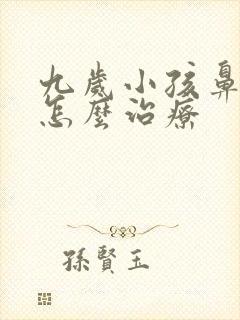 九歲小孩鼻
怎麼治療
孫賢玉